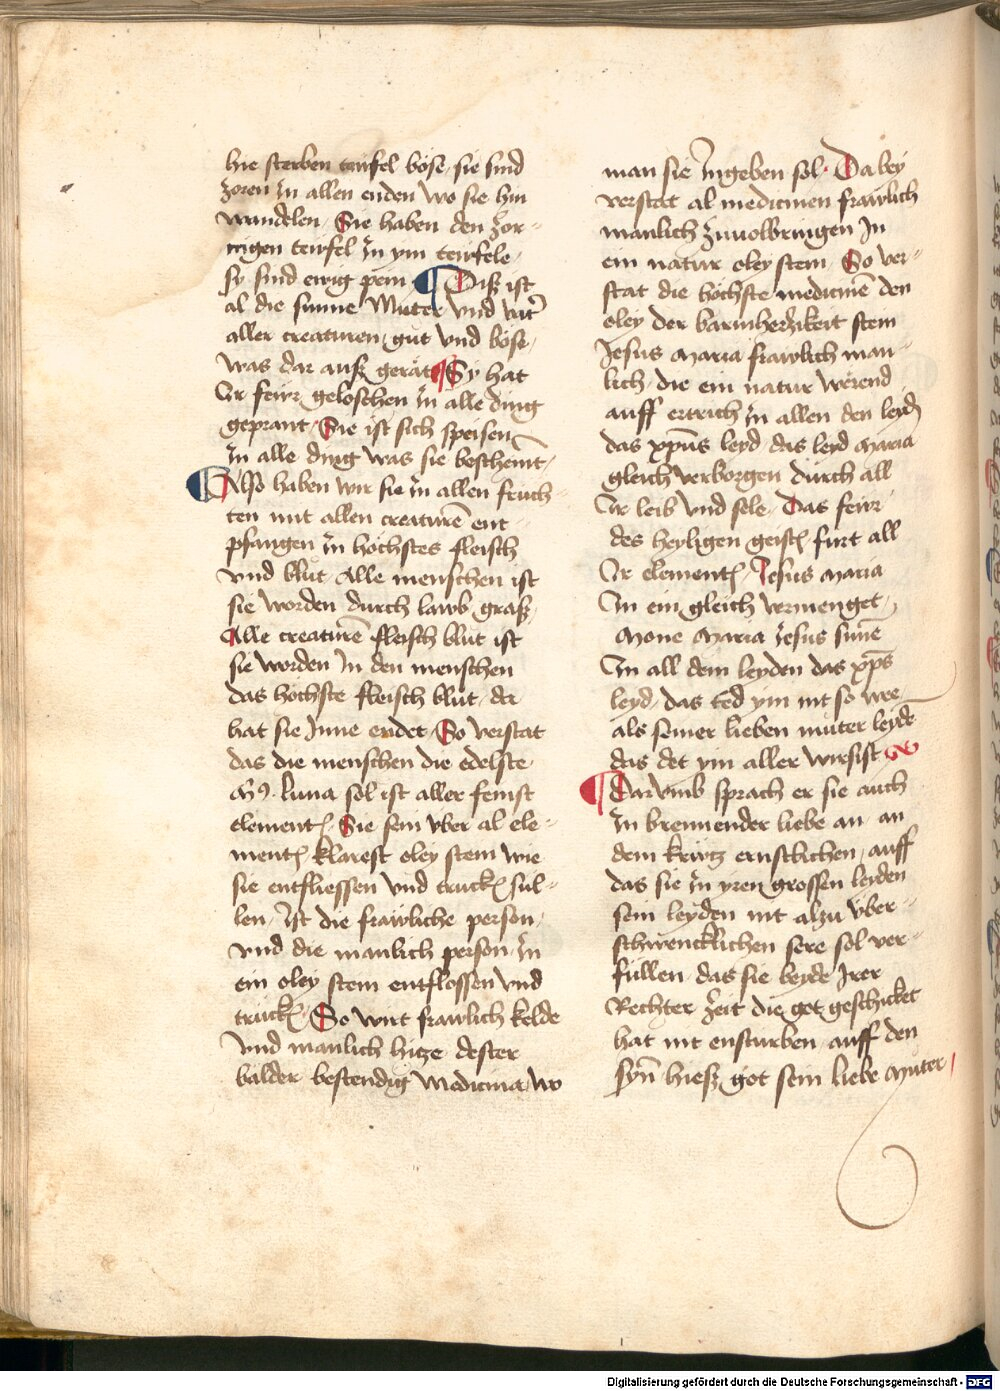 hie sterben teufel böse, sie sind
zoren in allen enden wo sie hin
wandelen, Sie haben den zor-
nigen teufel in ym teufele,
sy sind ewig pein ¶ Disz ist
al die sunne Muter vnd vat̕
aller creaturen, gut vnd böse,
was dar ausz gerät ¶ Sy hat
Ir feur, geloschen in alle ding
geprant, Sie ist sich speisen
in alle ding was sie bescheint,
¶ Also haben wir sie in allen fruch-
ten mit allen creaturē ent-
pfangen in höchstes fleisch
vnd blut, Alle menschen ist
sie worden durch lawb, grasz,
Alle creaturē fleisch blut ist
sie worden in den menschen
das höchste fleisch blut, da
hat sie Inne endet, So verstat
das die menschen die edelste
luna sol ist aller feinst
element, Sie sein vber al ele-
ment klarest oley stein wie
sie entfliessen vnd trucken sul-
len, Ist die frawliche person,
vnd die manlich person, in
ein oley stein entflossen vnd
trucken, So wirt frawlich kelde
vnd manlich hitze dester
balder bestendig Medicina, wo
man sie Ingeben sol, Dabey
verstat al medicinen frawlich
manlich zuuolbringen In
ein natur oley stein, So ver-
stat die höchste medicinē den
oley der barmherzikeit stein
Jesus Maria frawlich man-
lich, die ein natur werend
auff ertrich in allen den leyden
das xpūs leyd, das leyd Maria
gleich verborgen durch all
Ir leib vnd sele, Das feur
des heyligen geist furt all
Ir element, Jesus Maria
In ein gleich vermenget,
Mone Maria Jesus sunē
In all dem leyden das xp̄s
leyd, das ted ym nit so wee
als seiner lieben muter leyde
das det ym aller wirsist
¶ Darvmb sprach er sie auch
in brennender liebe an, an
dem krutz ernstlichen, auff
das sie in yren grossen leyden
sein leyden nit alzu vber-
schwencklichen sere sol ver-
füllen, das sie beyde Irer
Rechter zeit die got geschicket
hat nit ensturben, auff den
syn̄ hiesz got sein liebe Muter
Digitalisierung gefördert durch die Deutsche Forschungsgemeinschaft - DFG